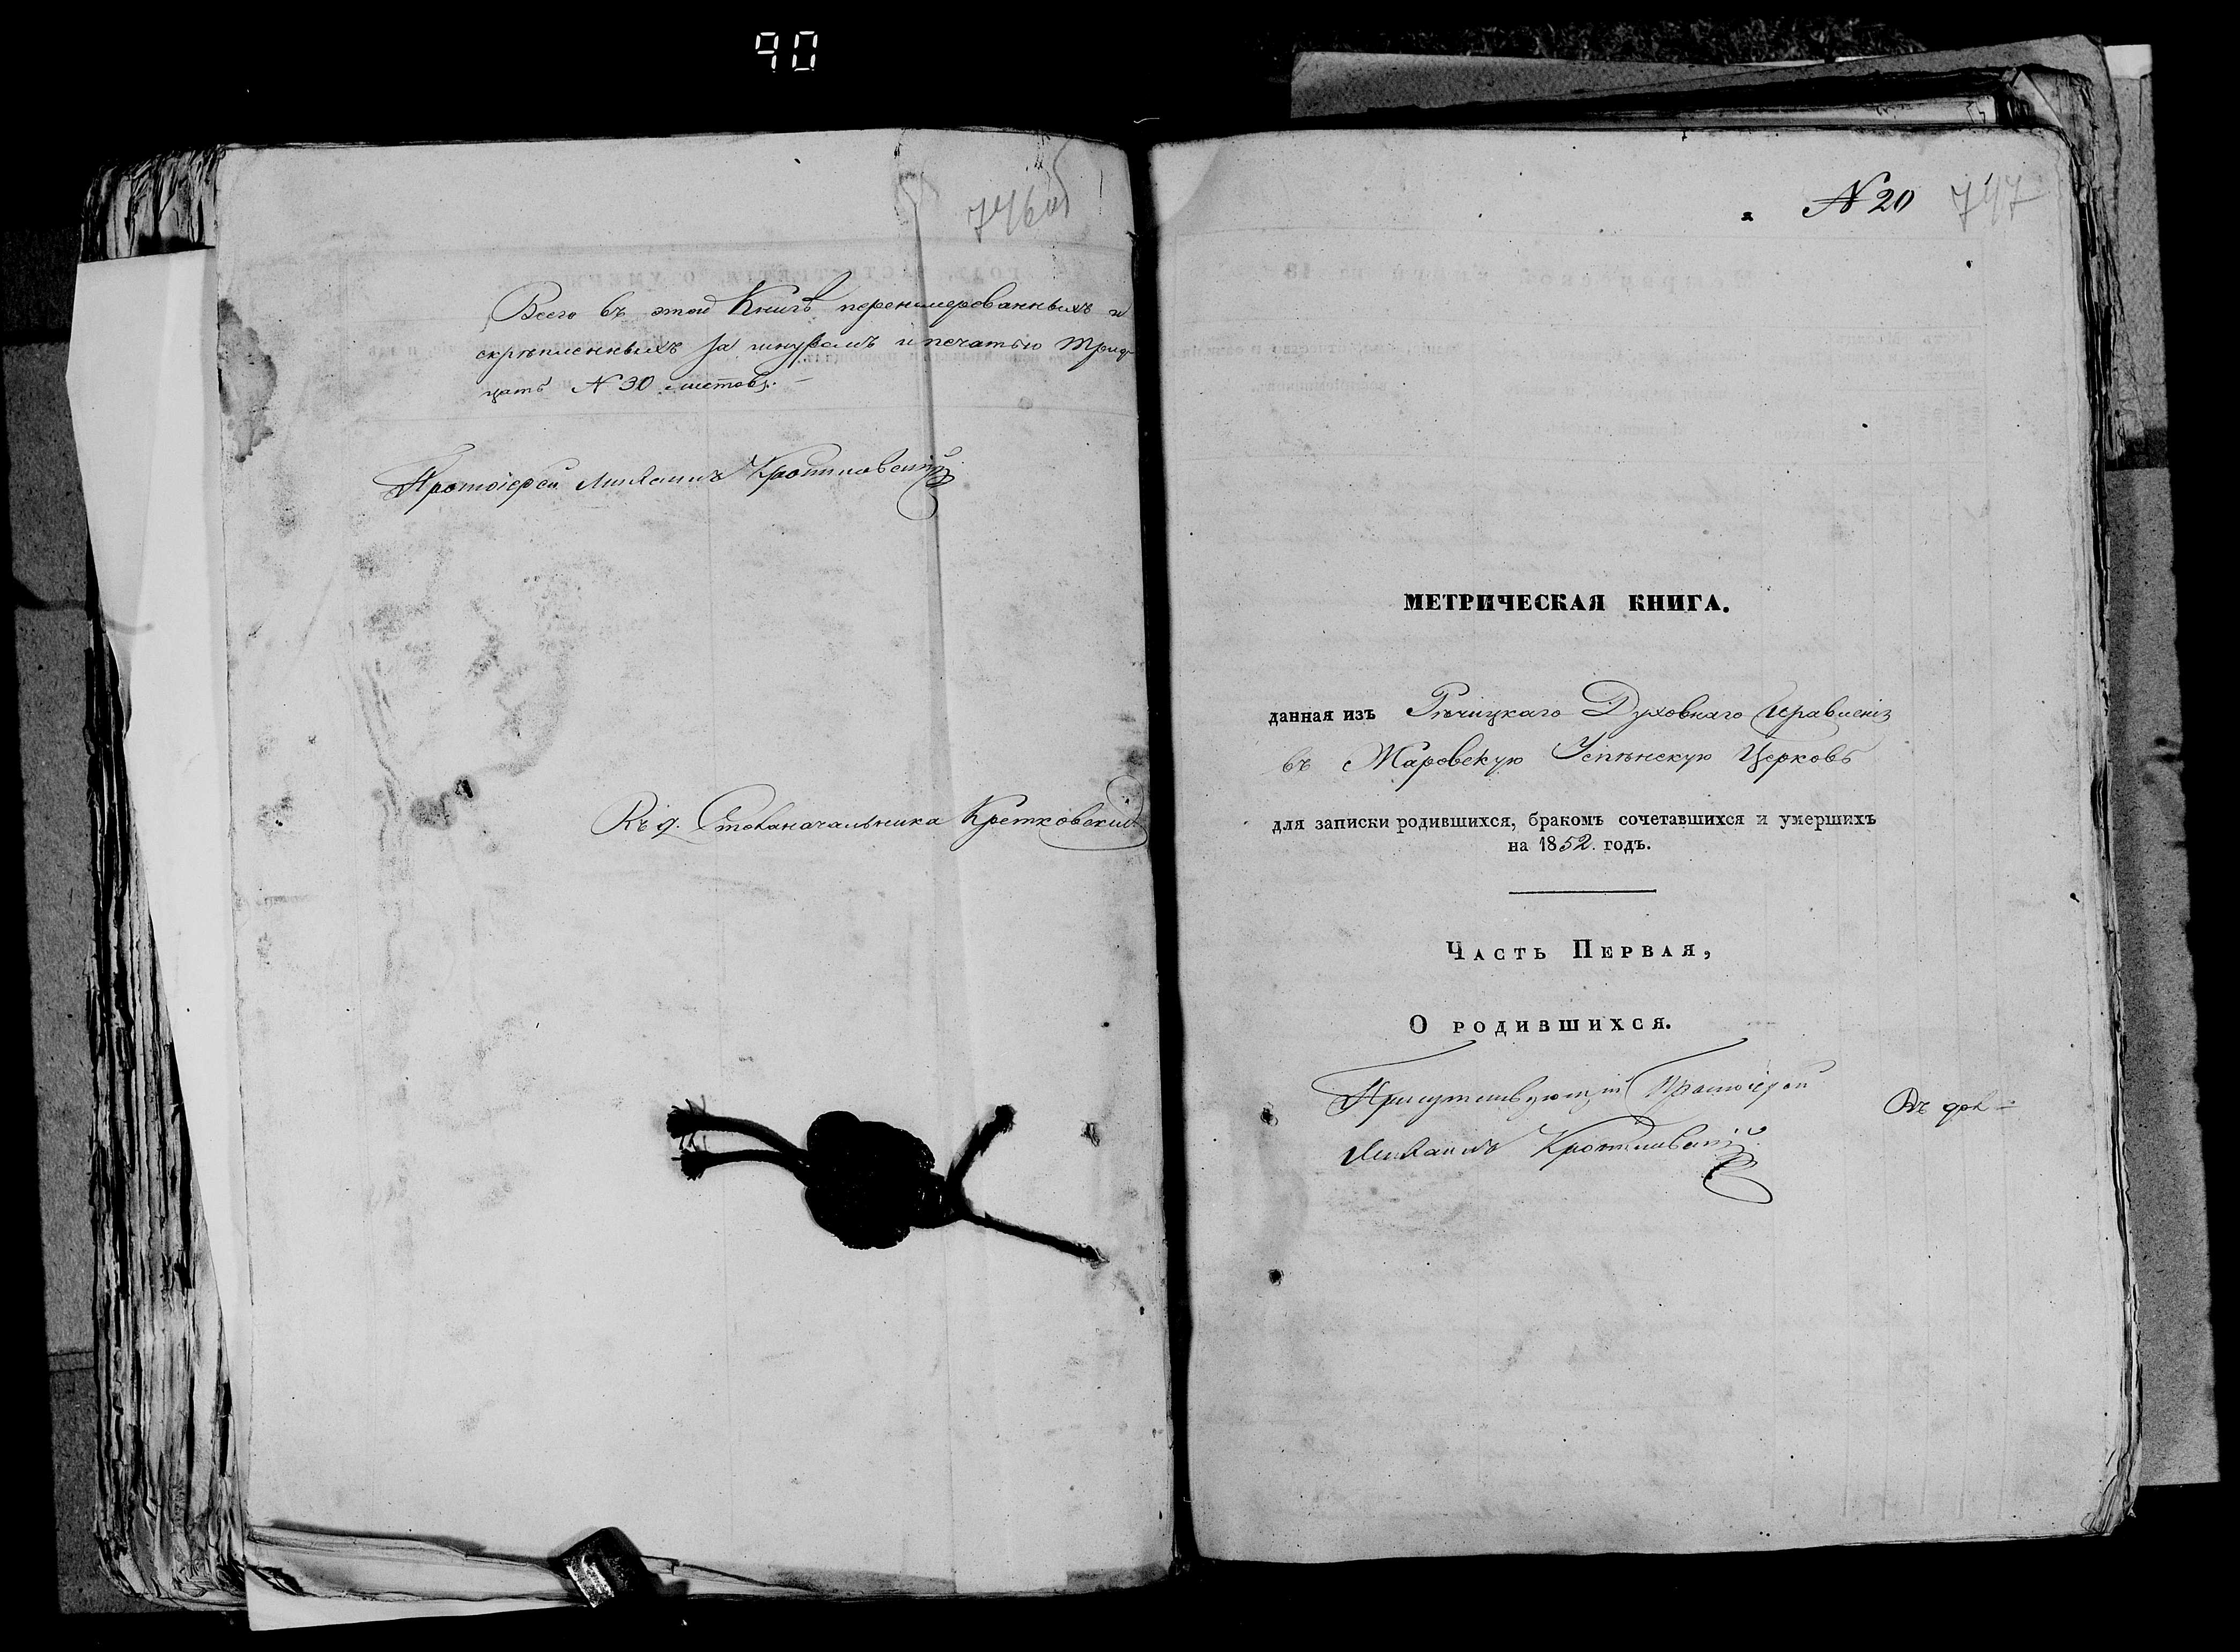 90
746 об
Всего въ этой Книгѣ перенумерованныхъ и
скрѣпленныхъ за шнуромъ и печатью трид-
цать № 30 листовъ.
Протоіерей Михаилъ
Къ д. Столоначальника Кретковскій
№ 20 747
МЕТРИЧЕСКАЯ КНИГА.
данная изъ Рѣчицкаго Духовнаго Правленія
въ Жаровскую Успѣнскую Церковь
для записки родившихся, бракомъ сочетавшихся и умершихъ
на 1852. годъ.
Часть Первая,
О родившихся.
Присутствующій Протоіерей
Михаилъ